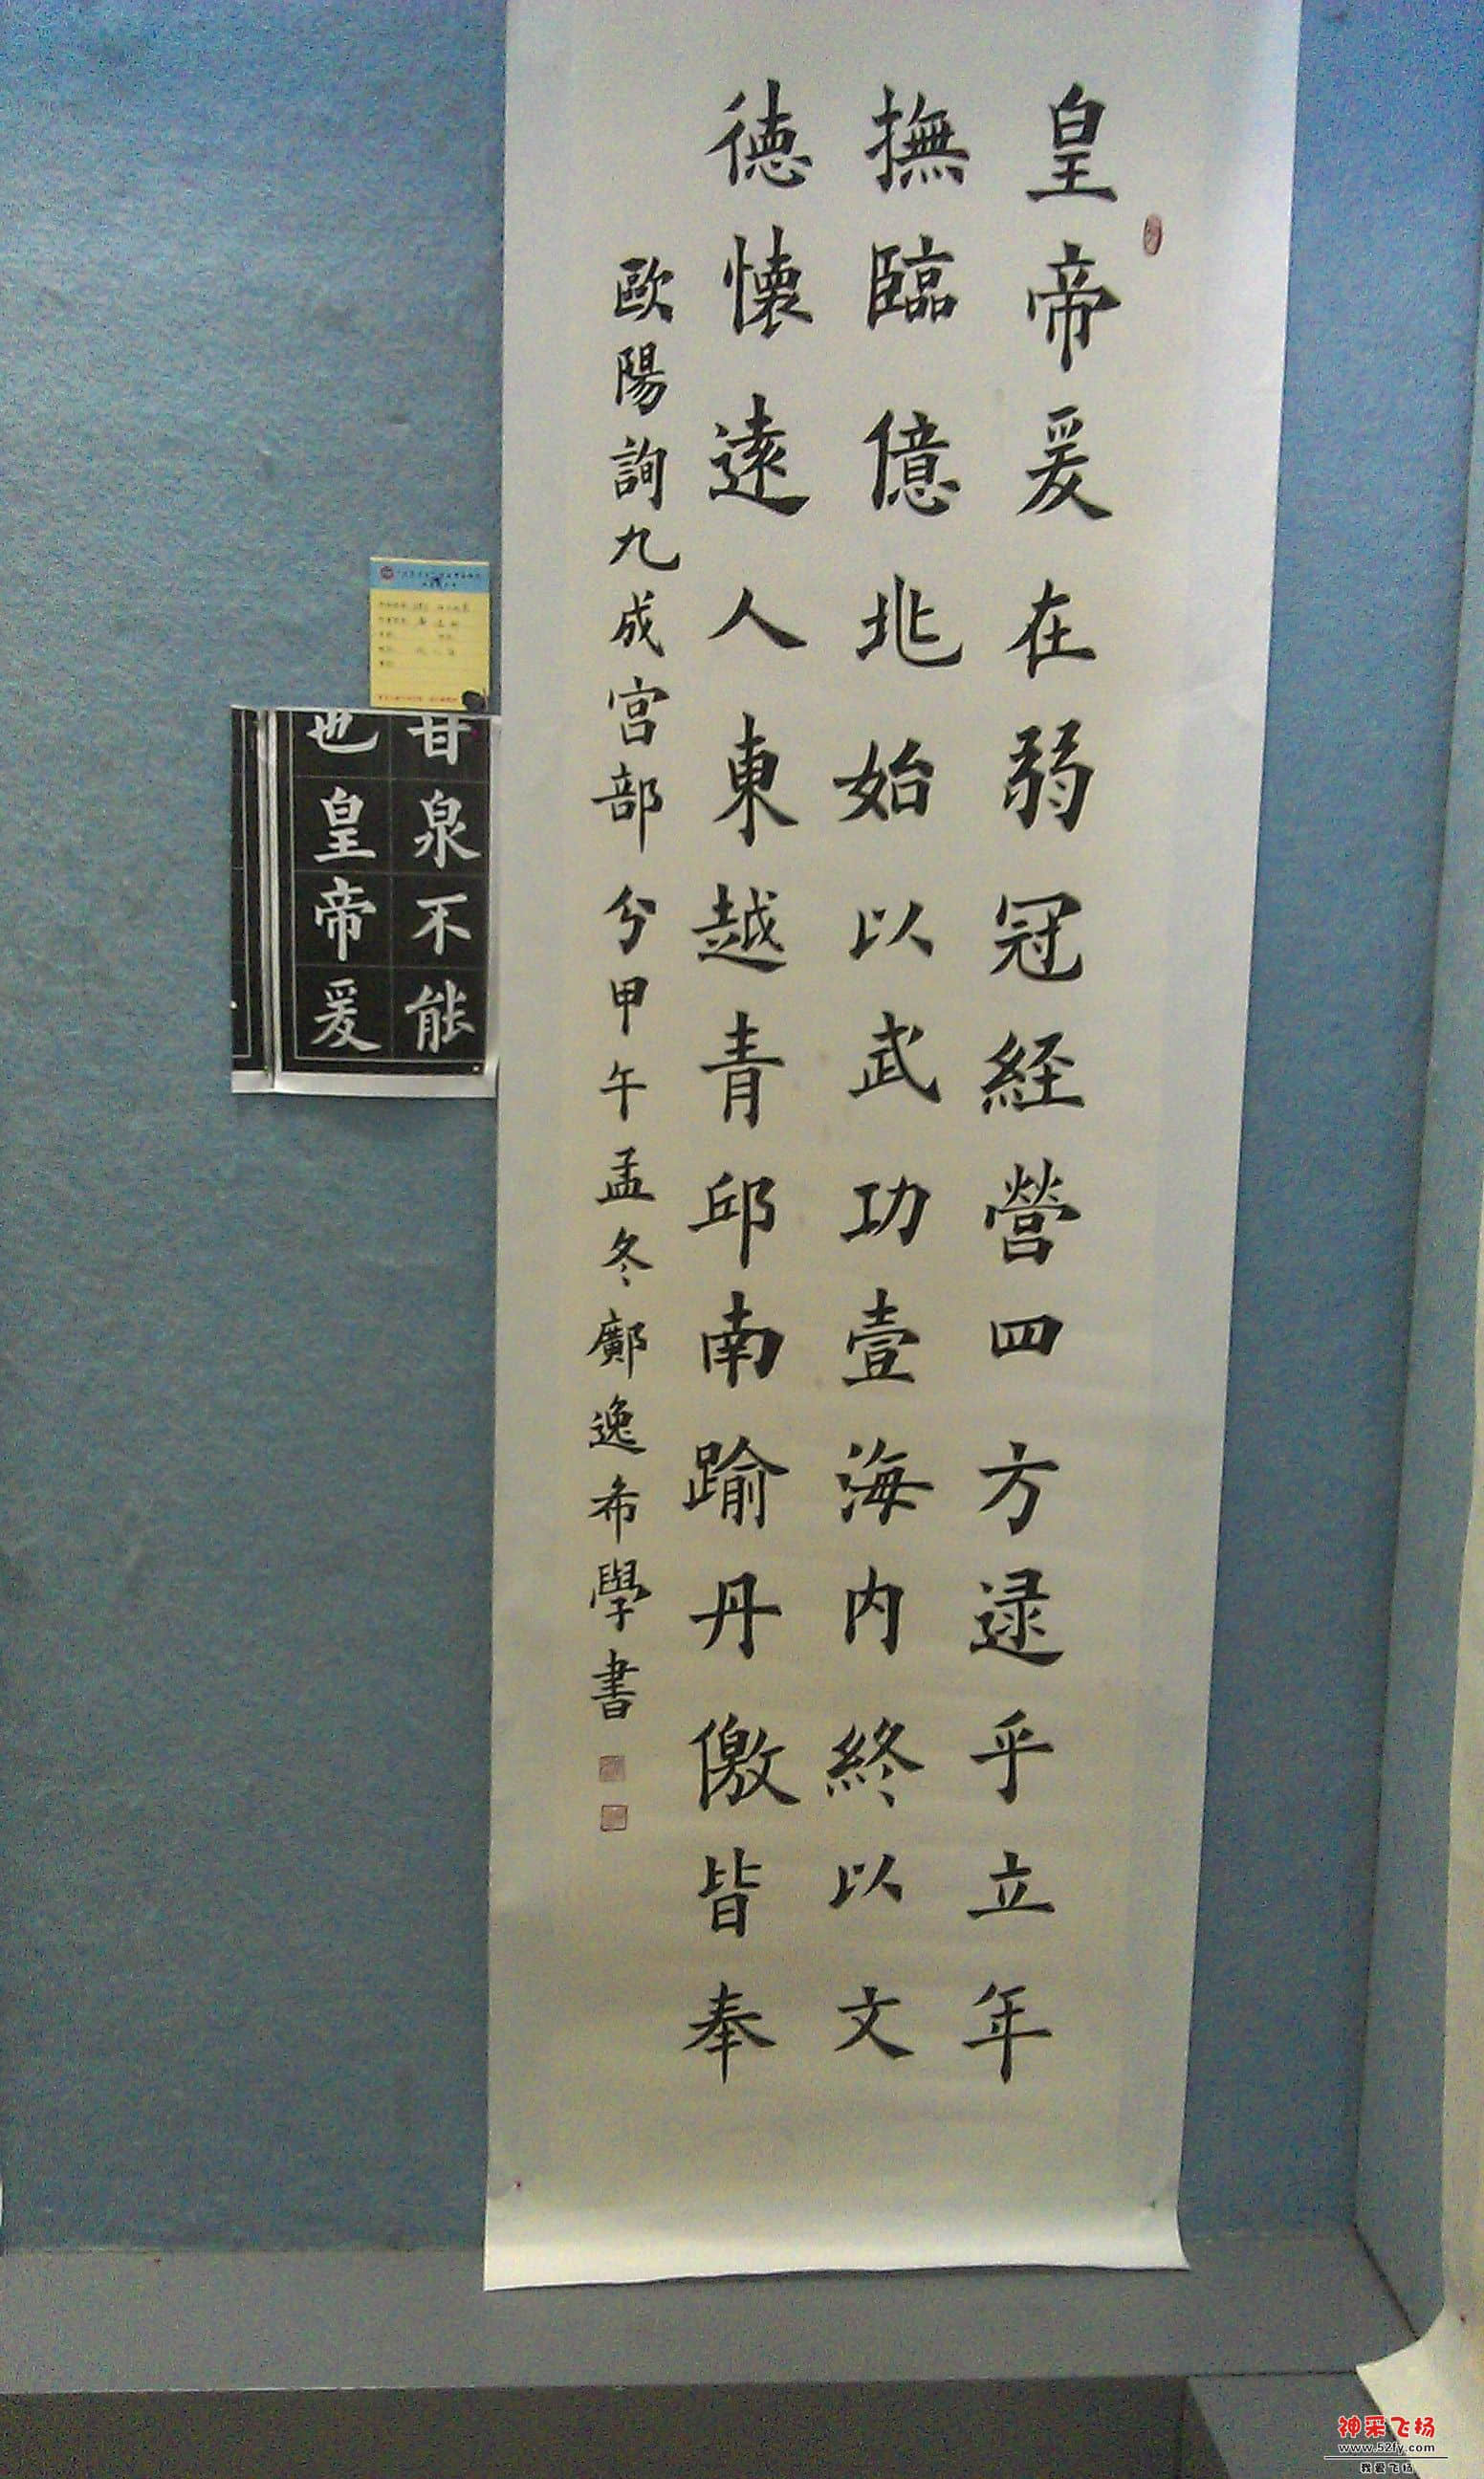 皇帝爰在弱冠経營四方逯乎立年
撫臨億兆始以武功壹海内終以文
徳懐逺人東越青邱南踰丹儌皆奉
歐陽詢九成宫部分甲午孟冬鄺逸希學書
甘泉不能
也皇帝爰
神采飞扬
www.52fy.com
我爱飞扬